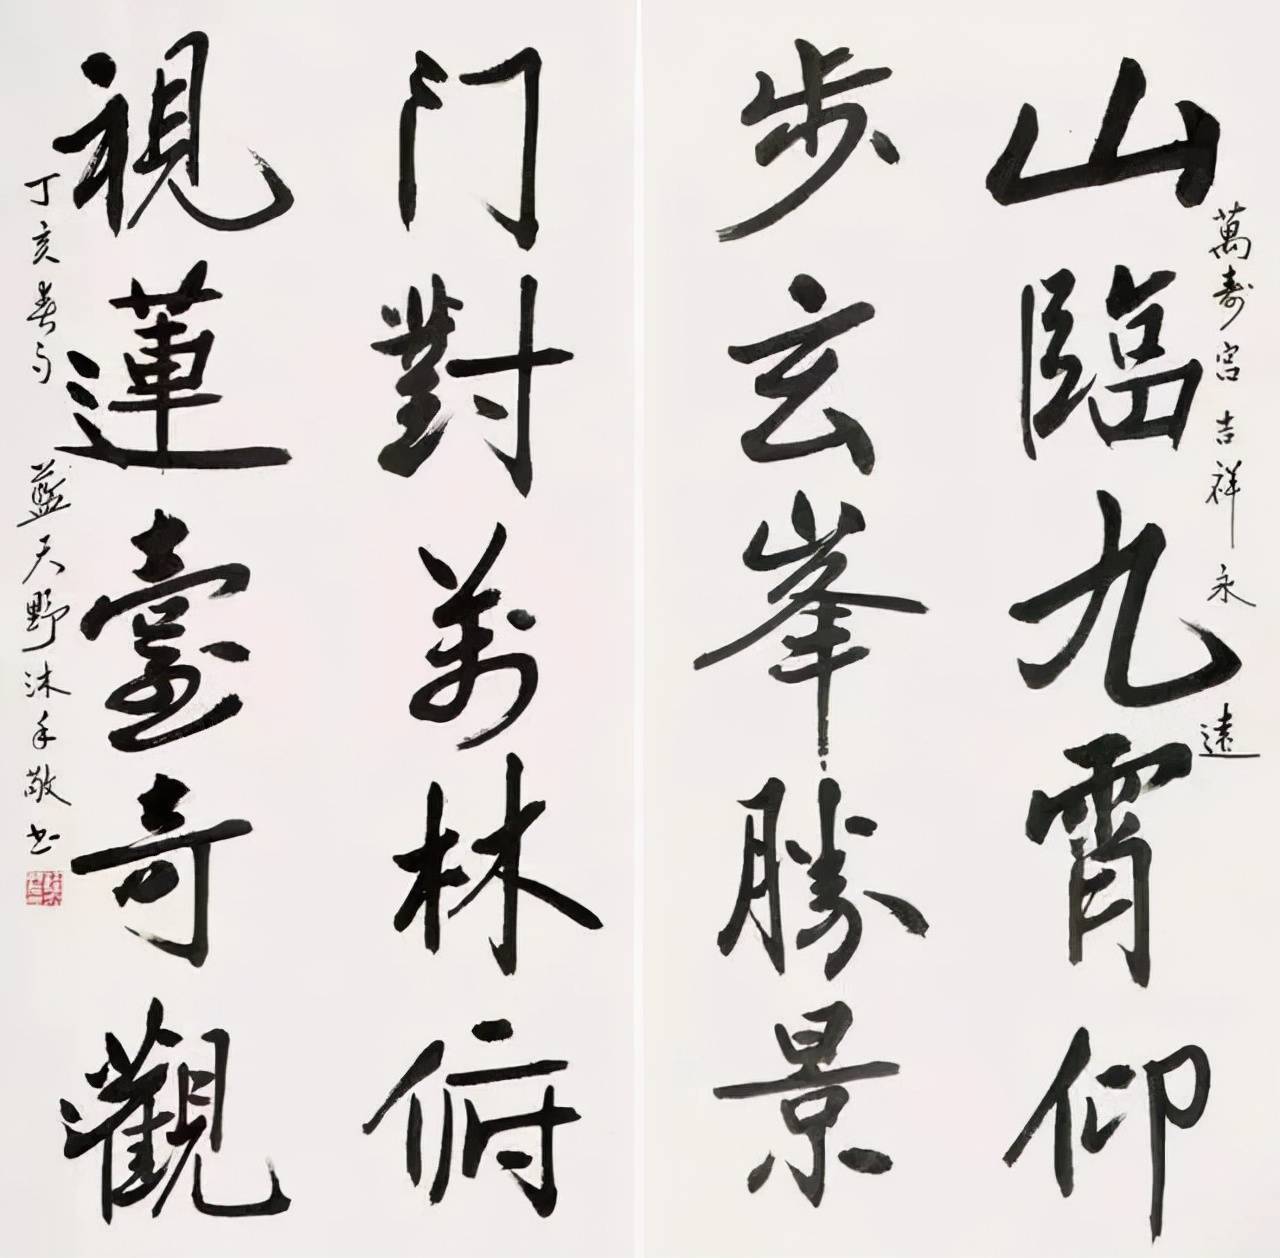 萬壽宮吉祥永遠
山臨九霄仰
步玄峯勝景
门對萬林俯
視蓮臺奇觀
丁亥春月 藍天野沐手敬书